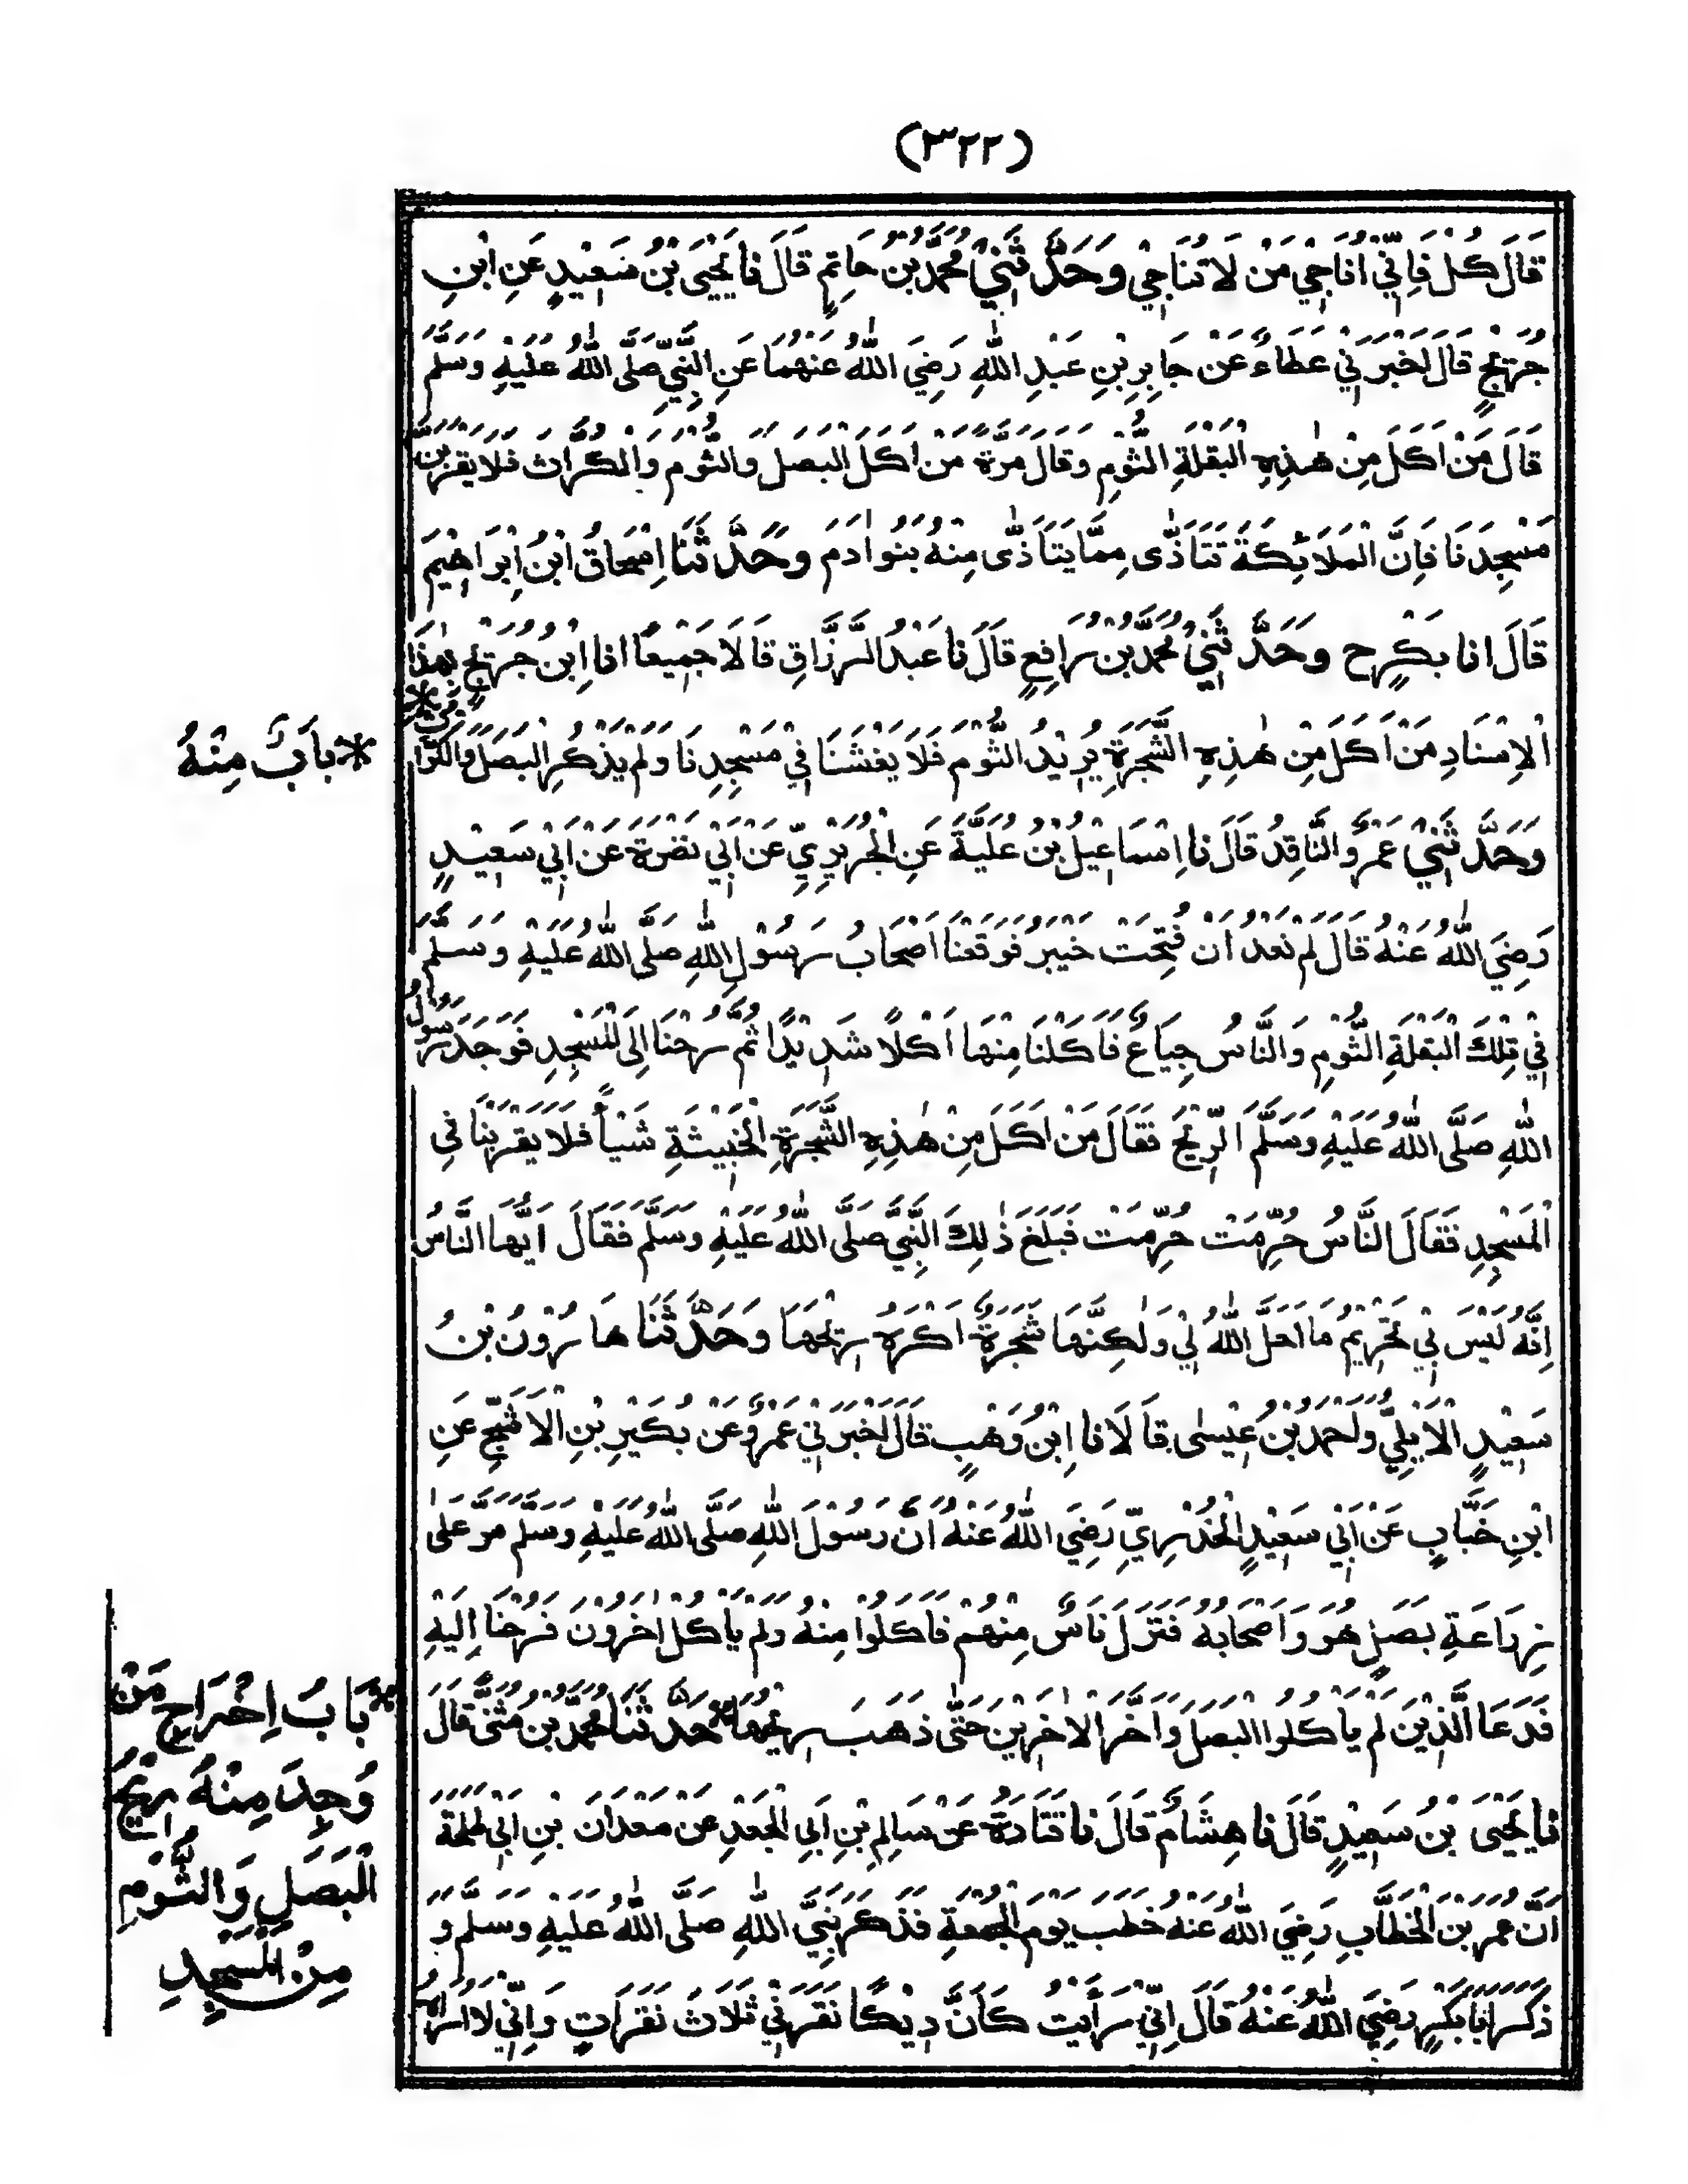 (٣٢٢)
قَالَ كُلْ فَاِنِّيْ اُنَاجِيْ مَنْ لَا تُنَاجِيْ وَحَدَّثَنِيْ مُحَمَّدُ بْنُ حَاتِمٍ قَالَ نا يَحْيَى بْنُ سَعِيْدٍ عَنِ ابْنِ
جُرَيْجٍ قَالَ اَخْبَرَنِيْ عَطَاءٌ عَنْ جَابِرِ بْنِ عَبْدِ اللّٰهِ رَضِيَ اللّٰهُ عَنْهُمَا عَنِ النَّبِيِّ صَلَّى اللّٰهُ عَلَيْهِ وَسَلَّمَ
قَالَ مَنْ اَكَلَ مِنْ هٰذِهِ الْبَقْلَةِ الثُّوْمِ وَقَالَ مَرَّةً مَنْ اَكَلَ الْبَصَلَ وَالثُّوْمَ وَالْكُرَّاثَ فَلَا يَقْرَبَنَّ
مَسْجِدَنَا فَاِنَّ الْمَلَائِكَةَ تَتَاَذّٰى مِمَّا يَتَاَذّٰى مِنْهُ بَنُوْ اٰدَمَ وَحَدَّثَنَا اِسْحَاقُ ابْنُ اِبْرَاهِيْمَ
قَالَ انا بَكْرٍ ح وَحَدَّثَنِيْ مُحَمَّدُ بْنُ رَافِعٍ قَالَ نا عَبْدُ الرَّزَّاقِ قَالَا جَمِيْعًا انا اِبْنُ جُرَيْجٍ بِهٰذَا
الْاِسْنَادِ مَنْ اَكَلَ مِنْ هٰذِهِ الشَّجَرَةِ يُرِيْدُ الثُّوْمَ فَلَا يَغْشَنَا فِيْ مَسْجِدِنَا وَلَمْ يَذْكُرِ الْبَصَلَ وَالْكُرَّاثَ *
* بَابٌ مِنْهُ
وَحَدَّثَنِيْ عَمْرٌو النَّاقِدُ قَالَ نا اِسْمَاعِيْلُ بْنُ عُلَيَّةَ عَنِ الْجُرَيْرِيِّ عَنْ اَبِيْ نَضْرَةَ عَنْ اَبِيْ سَعِيْدٍ
رَضِيَ اللّٰهُ عَنْهُ قَالَ لَمْ نَعْدُ اَنْ فُتِحَتْ خَيْبَرُ فَوَقَعْنَا اَصْحَابُ رَسُوْلِ اللّٰهِ صَلَّى اللّٰهُ عَلَيْهِ وَسَلَّمَ
فِيْ تِلْكَ الْبَقْلَةِ الثُّوْمِ وَالنَّاسُ جِيَاعٌ فَاَكَلْنَا مِنْهَا اَكْلًا شَدِيْدًا ثُمَّ رُحْنَا اِلَى الْمَسْجِدِ فَوَجَدَ رَسُوْلُ
اللّٰهِ صَلَّى اللّٰهُ عَلَيْهِ وَسَلَّمَ الرِّيْحَ فَقَالَ مَنْ اَكَلَ مِنْ هٰذِهِ الشَّجَرَةِ الْخَبِيْثَةِ شَيْأً فَلَا يَقْرَبْنَا فِي
الْمَسْجِدِ فَقَالَ النَّاسُ حُرِّمَتْ حُرِّمَتْ فَبَلَغَ ذٰلِكَ النَّبِيَّ صَلَّى اللّٰهُ عَلَيْهِ وَسَلَّمَ فَقَالَ اَيُّهَا النَّاسُ
اِنَّهُ لَيْسَ بِيْ تَحْرِيْمُ مَا اَحَلَّ اللّٰهُ لِيْ وَلٰكِنَّهَا شَجَرَةٌ اَكْرَهُ رِيْحَهَا وَحَدَّثَنَا هَارُوْنُ بْنُ
سَعِيْدٍ الْاَيْلِيُّ وَاَحْمَدُ بْنُ عِيْسٰى قَالَا نا اِبْنُ وَهْبٍ قَالَ اَخْبَرَنِيْ عَمْرٌو عَنْ بُكَيْرِ بْنِ الْاَشَجِّ عَنِ
ابْنِ خَبَّابٍ عَنْ اَبِيْ سَعِيْدٍ الْخُدْرِيِّ رَضِيَ اللّٰهُ عَنْهُ اَنَّ رَسُوْلَ اللّٰهِ صَلَّى اللّٰهُ عَلَيْهِ وَسَلَّمَ مَرَّ عَلٰى
زِرَاعَةِ بَصَلٍ هُوَ وَاَصْحَابُهُ فَنَزَلَ نَاسٌ مِنْهُمْ فَاَكَلُوْا مِنْهُ وَلَمْ يَأْكُلْ اٰخَرُوْنَ فَرُحْنَا اِلَيْهِ
فَدَعَا الَّذِيْنَ لَمْ يَأْكُلُوا الْبَصَلَ وَاَخَّرَ الْاٰخَرِيْنَ حَتّٰى ذَهَبَ رِيْحُهَا * حَدَّثَنَا مُحَمَّدُ بْنُ مُثَنّٰى قَالَ
نا يَحْيَى بْنُ سَعِيْدٍ قَالَ نا هِشَامٌ قَالَ نا قَتَادَةُ عَنْ سَالِمِ بْنِ اَبِي الْجَعْدِ عَنْ مَعْدَانَ بْنِ اَبِيْ طَلْحَةَ
اَنَّ عُمَرَ بْنَ الْخَطَّابِ رَضِيَ اللّٰهُ عَنْهُ خَطَبَ يَوْمَ الْجُمُعَةِ فَذَكَرَ نَبِيَّ اللّٰهِ صَلَّى اللّٰهُ عَلَيْهِ وَسَلَّمَ وَ
ذَكَرَ اَبَا بَكْرٍ رَضِيَ اللّٰهُ عَنْهُ قَالَ اِنِّيْ رَأَيْتُ كَاَنَّ دِيْكًا نَقَرَنِيْ ثَلَاثَ نَقَرَاتٍ وَاِنِّيْ لَا اُرَاهُ
* بَابُ اِخْرَاجِ مَنْ
وُجِدَ مِنْهُ رِيْحُ
الْبَصَلِ وَالثُّوْمِ
مِنَ الْمَسْجِدِ